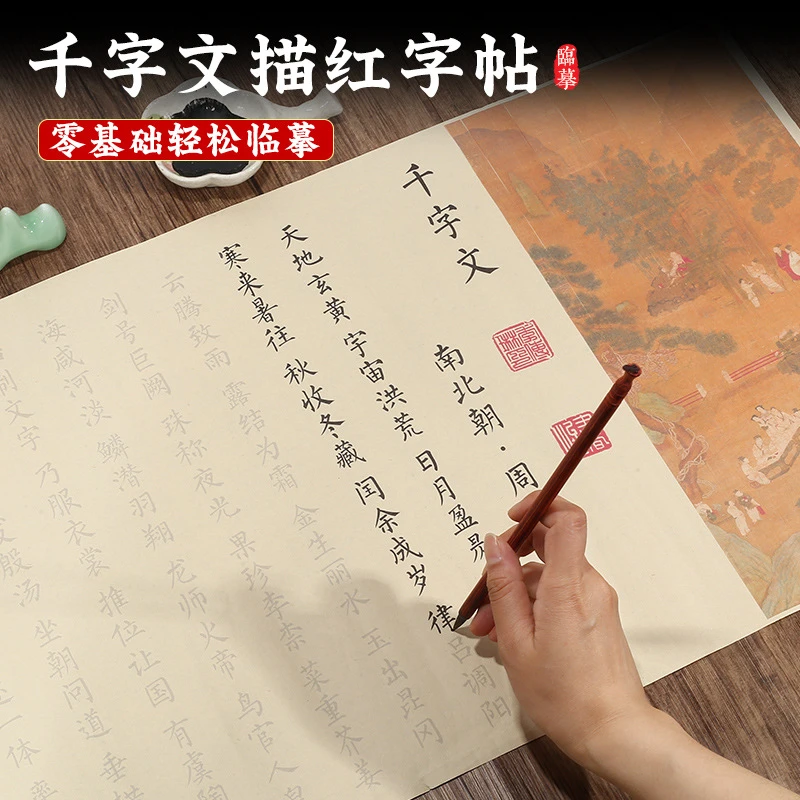 千字文描红字帖
臨摹
零基础轻松临摹
千字文
南北朝·周
天地玄黄 宇宙洪荒 日月盈昃
寒来暑往 秋收冬藏 闰余成岁 律吕调阳
云腾致雨 露结为霜 金生丽水 玉出昆冈
剑号巨阙 珠称夜光 果珍李柰 菜重芥姜
海咸河淡 鳞潜羽翔 龙师火帝 鸟官人
制文字 乃服衣裳 推位让国 有虞陶
殷汤 坐朝问道 垂拱
一体 率